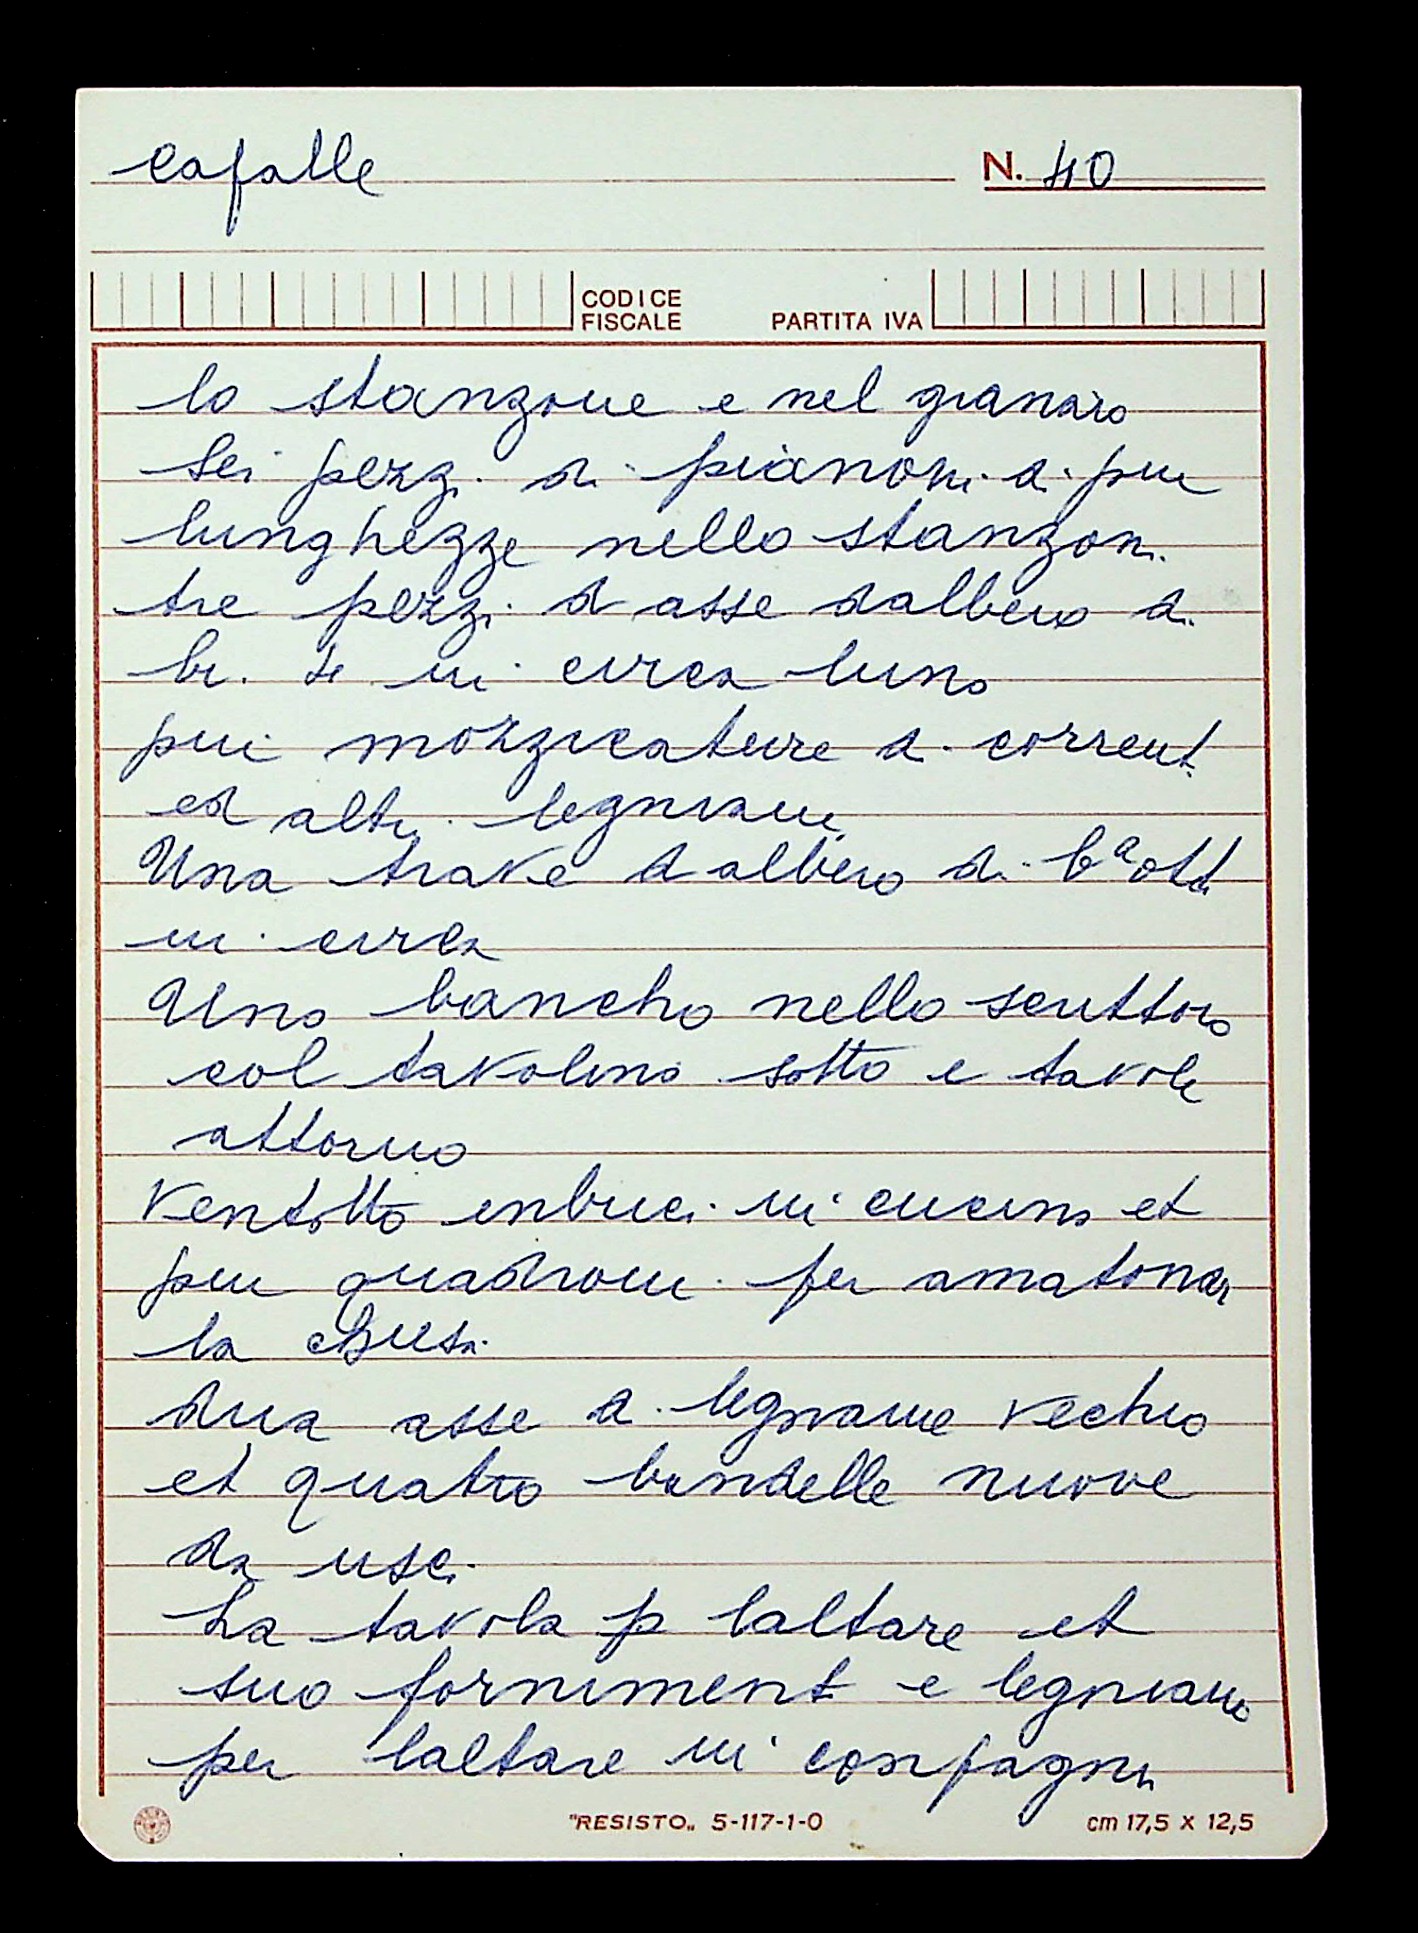 Cafalle N. 40
CODICE
FISCALE PARTITA IVA
lo stanzone e nel granaro
Sei pezzi di pianoni di piu
lunghezze nello stanzon.
tre pezzi d asse dalbero di
br. 4 in circa luno
piu mozzicature di corrent.
ed altri legniami
Una trave d albero di bª otto
in circa
Uno bancho nello scrittoro
col tavolino sotto e tavole
attorno
Ventotto enbrici in cucina et
piu quadroni per amatonar
la chiesa
dua asse di legniame vechio
et quatro bandelle nuove
da usci
La tavola p laltare et
suo forniment e legniamo
per laltare in conpagni
"RESISTO„ 5-117-1-0 cm 17,5 x 12,5